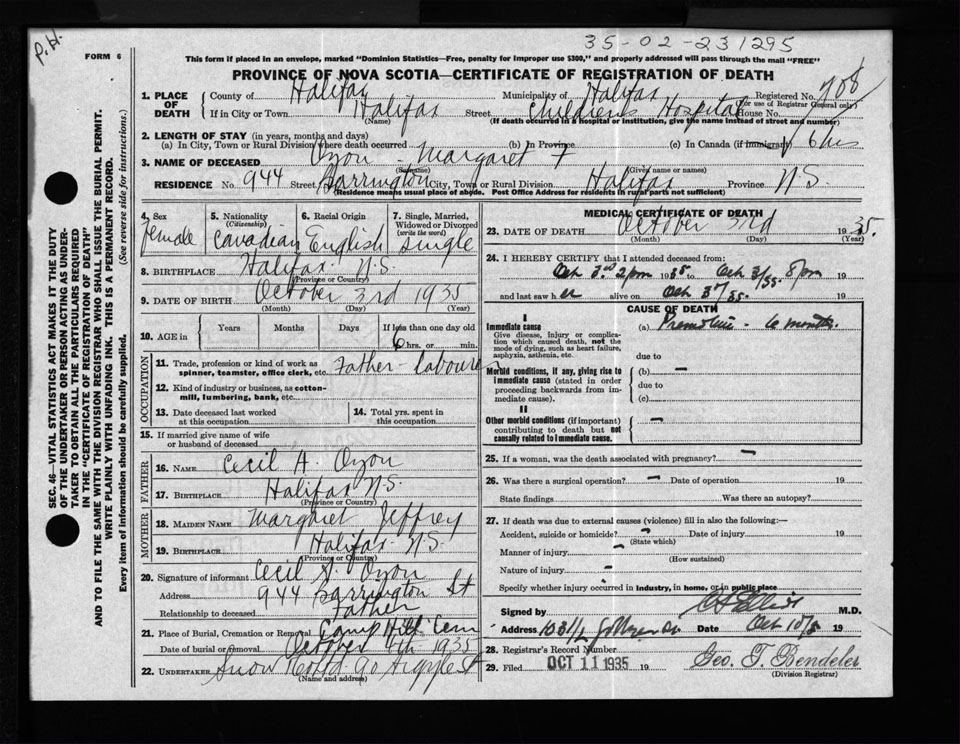 P.H.
35-02-231295
FORM 6
This form if placed in an envelope, marked "Dominion Statistics—Free, penalty for improper use $300," and properly addressed will pass through the mail "FREE"
PROVINCE OF NOVA SCOTIA—CERTIFICATE OF REGISTRATION OF DEATH
1. PLACE OF DEATH County of Halifax Municipality of Halifax Registered No. 708
(For use of Registrar General only)
If in City or Town Halifax Street Children's Hospital House No.
(Name) (If death occurred in a hospital or institution, give the name instead of street and number)
2. LENGTH OF STAY (in years, months and days)
(a) In City, Town or Rural Division where death occurred (b) In Province (c) In Canada (if immigrant) 6 hrs
3. NAME OF DECEASED Oyon - Margaret F
(Surname) (Given name or names)
RESIDENCE No. 944 Street Barrington City, Town or Rural Division Halifax Province N.S.
(Residence means usual place of abode. Post Office Address for residents in rural parts not sufficient)
4. Sex female
5. Nationality (Citizenship) Canadian
6. Racial Origin English
7. Single, Married, Widowed or Divorced (write the word) Single
8. BIRTHPLACE Halifax N.S.
(Province or Country)
9. DATE OF BIRTH October 3rd 1935
(Month) (Day) (Year)
10. AGE in Years Months Days If less than one day old
6 hrs. or min.
OCCUPATION
11. Trade, profession or kind of work as spinner, teamster, office clerk, etc. Father - labourer
12. Kind of industry or business, as cotton-mill, lumbering, bank, etc.
13. Date deceased last worked at this occupation
14. Total yrs. spent in this occupation
15. If married give name of wife or husband of deceased
FATHER
16. NAME Cecil A. Oyon
17. BIRTHPLACE Halifax N.S.
(Province or Country)
MOTHER
18. MAIDEN NAME Margaret Jeffrey
19. BIRTHPLACE Halifax N.S.
(Province or Country)
20. Signature of informant Cecil A. Oyon
Address 944 Barrington St
Relationship to deceased Father
21. Place of Burial, Cremation or Removal Camp Hill Cem
Date of burial or removal October 4th 1935
22. UNDERTAKER Snow & Co Ltd 90 Argyle St
(Name and address)
MEDICAL CERTIFICATE OF DEATH
23. DATE OF DEATH October 3rd 1935.
(Month) (Day) (Year)
24. I HEREBY CERTIFY that I attended deceased from:
Oct 3rd 2 pm 1935 to Oct 3/35 8 pm 19
and last saw her alive on Oct 3rd/35. 19
CAUSE OF DEATH
I
Immediate cause
Give disease, injury or complication which caused death, not the mode of dying, such as heart failure, asphyxia, asthenia, etc.
(a) Premature - 6 months.
due to
Morbid conditions, if any, giving rise to immediate cause (stated in order proceeding backwards from immediate cause).
(b) —
due to
(c)
II
Other morbid conditions (if important) contributing to death but not causally related to immediate cause.
—
25. If a woman, was the death associated with pregnancy? —
26. Was there a surgical operation? — Date of operation 19
State findings Was there an autopsy?
27. If death was due to external causes (violence) fill in also the following:—
Accident, suicide or homicide? — Date of injury 19
(State which)
Manner of injury -
(How sustained)
Nature of injury -
Specify whether injury occurred in industry, in home, or in public place
Signed by M.D.
Address Date Oct 10/35
28. Registrar's Record Number
29. Filed OCT 11 1935 19 Geo. T. Bendeler
(Division Registrar)
SEC. 46—VITAL STATISTICS ACT MAKES IT THE DUTY
OF THE UNDERTAKER OR PERSON ACTING AS UNDER-
TAKER TO OBTAIN ALL THE PARTICULARS REQUIRED
IN THE "CERTIFICATE OF REGISTRATION OF DEATH"
AND TO FILE THE SAME WITH THE DIVISION REGISTRAR WHO SHALL ISSUE THE BURIAL PERMIT.
WRITE PLAINLY WITH UNFADING INK. THIS IS A PERMANENT RECORD.
Every item of information should be carefully supplied. (See reverse side for instructions.)